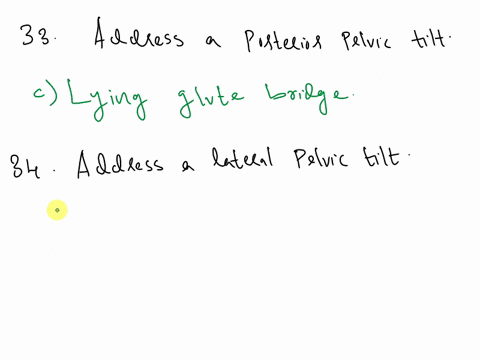 33. Address a Posterior Pelvic tilt.
c) Lying glute bridge.
34. Address a lateral Pelvic tilt.